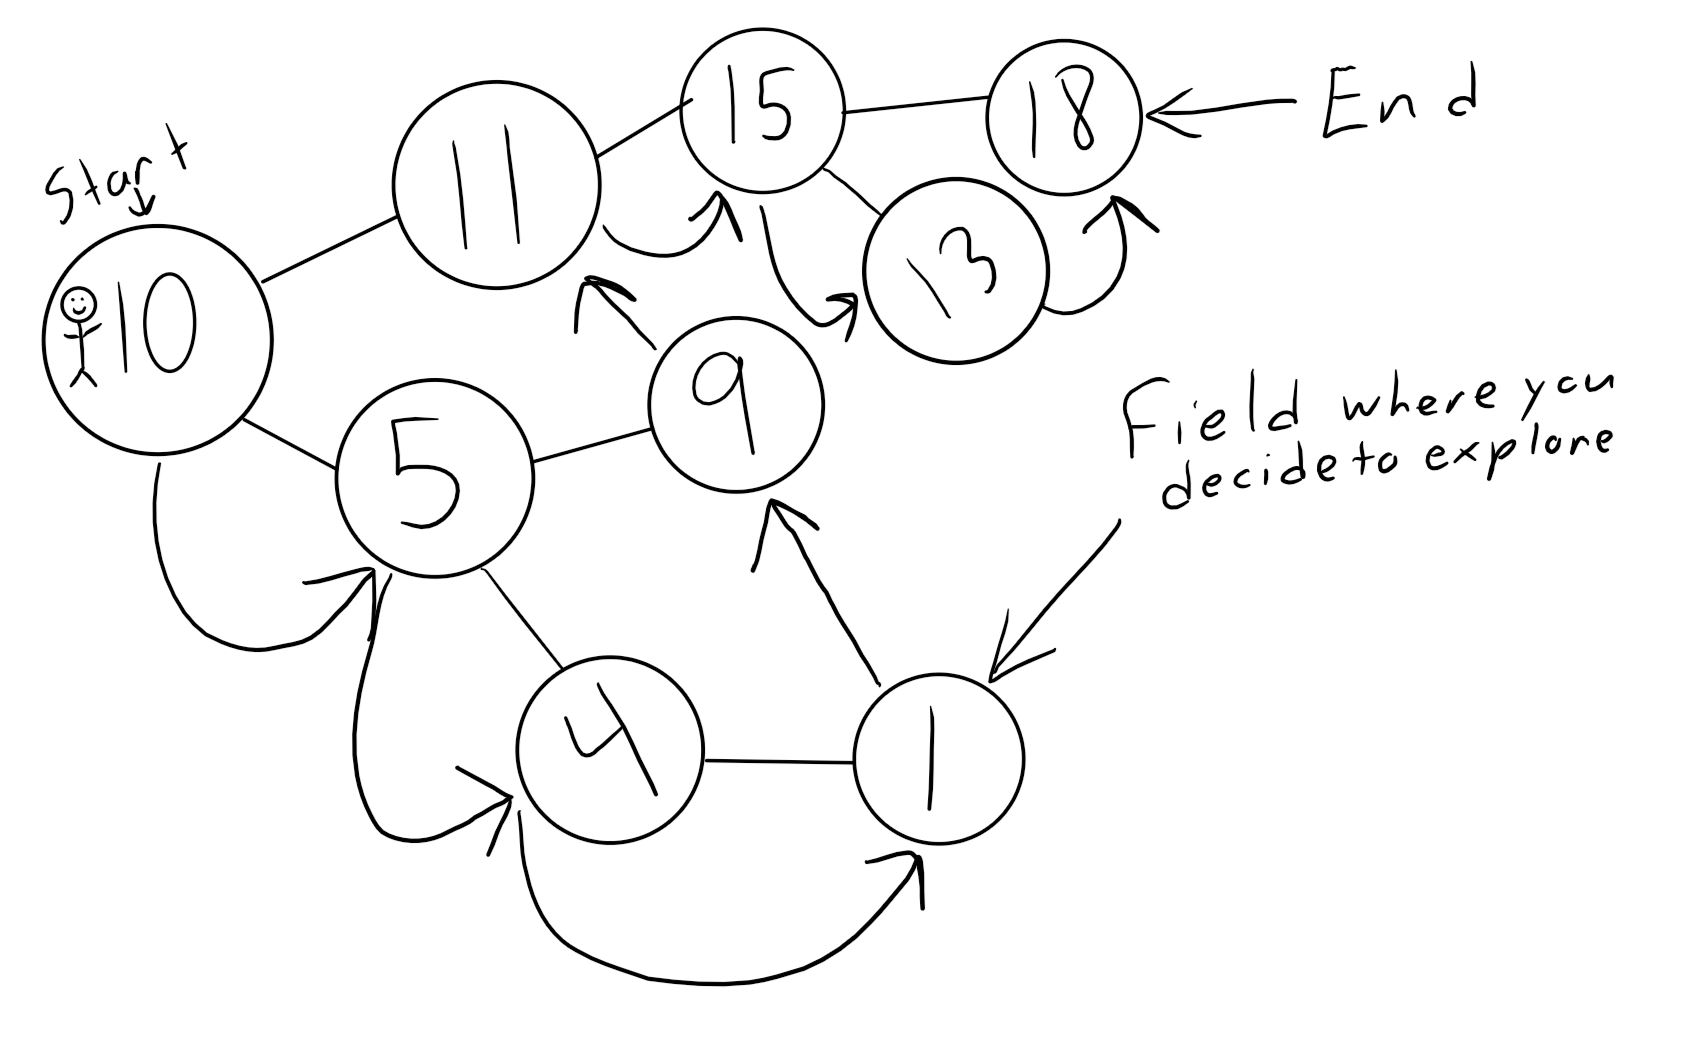 Start
10
11
15
18
End
13
5
9
Field where you
decide to explore
4
1